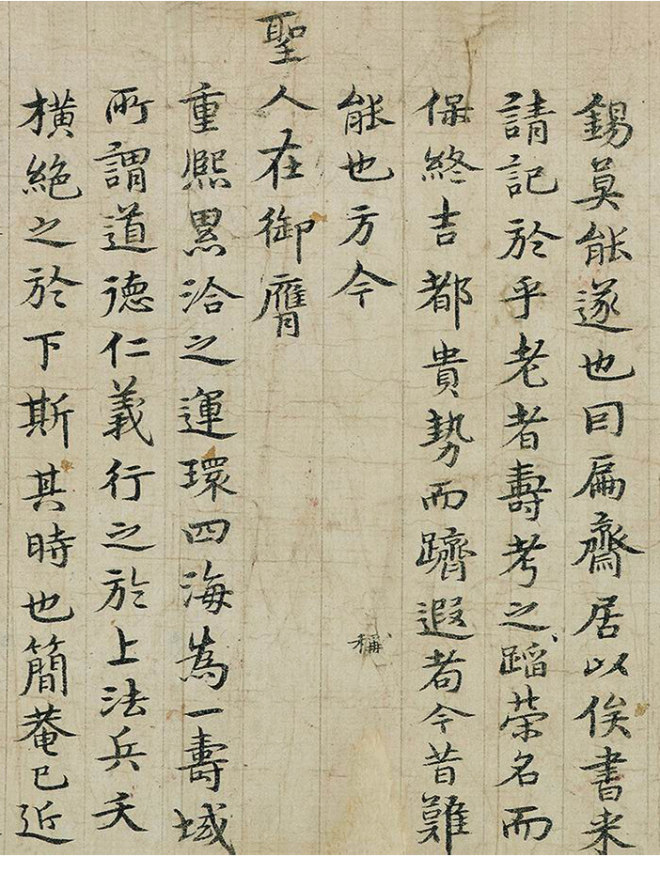 錫莫能遂也因扁齋居以俟書来
請記於乎老者壽考之蹈榮名而
保終吉都貴勢而躋遐耇今昔難
稱
能也方今
聖人在御膺
重熈累洽之運環四海為一壽域
所謂道德仁義行之於上法兵夭
橫絶之於下斯其時也簡菴已近